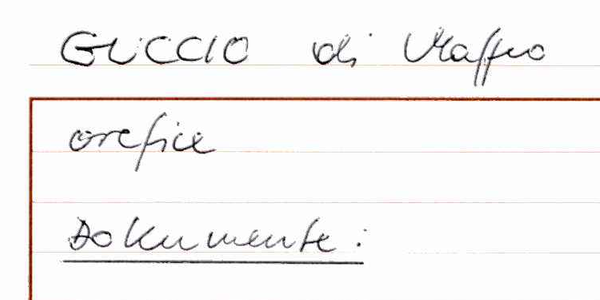 GUCCIO di Maffeo
orefice
Dokumente: